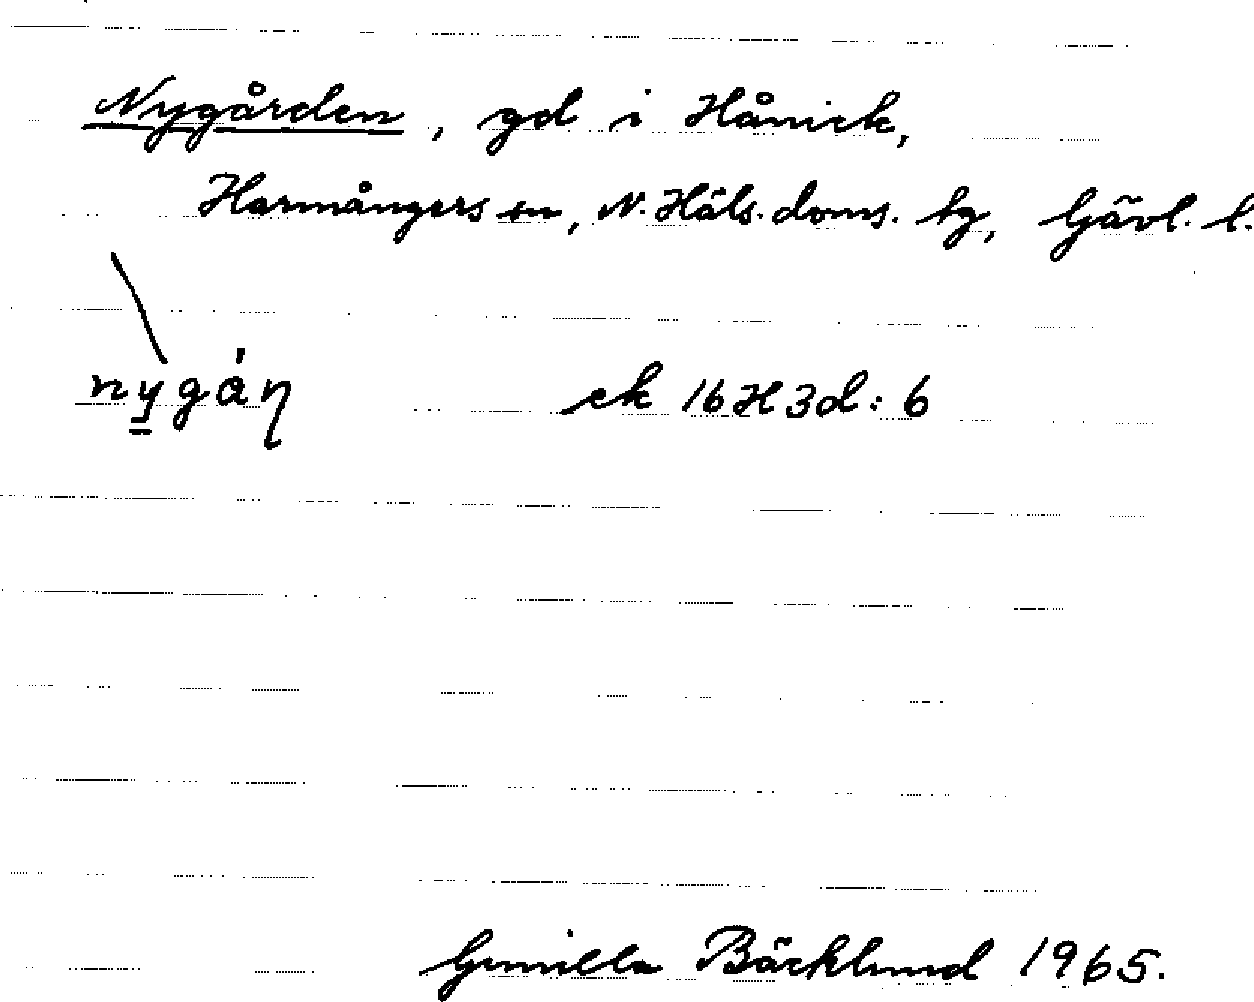 Nygården, gd i Hånick,
Harmångers sn, N. Häls. doms. tg, Gävl. l.
nygåṇ ek 16H3d:6
Gunilla Bäcklund 1965.